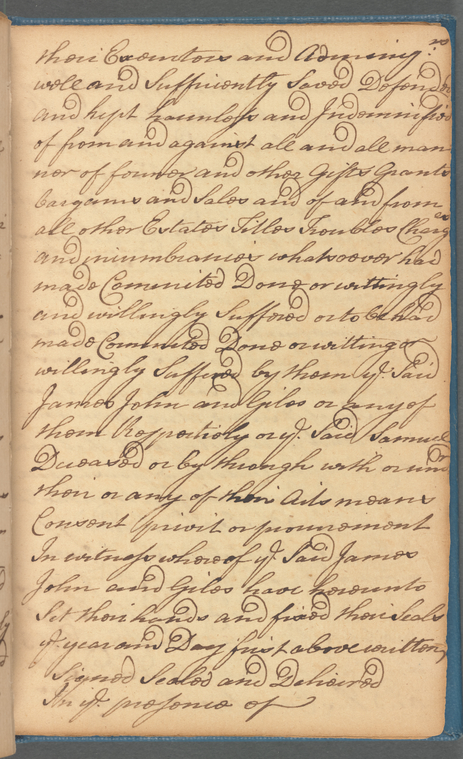 their Executors and Admining.rs
well and Sufficiently Saved Defended
and kept harmless and Indemnified
of from and against all and all man
ner of former and other Gifts Grants
bargains and Sales and of and from
all other Estates Titles Troubles Charges
and incumbrances whatsoever had
made Commited Done or wittingly
and willingly Suffered or to be had
made Commited Done or witting or
willingly Suffered by them ye. Said
James John and Giles or any of
them Respectively or ye. Said Samuel
Deceased or by through with or under
their or any of their Acts means
Consent privit or procurement
In witness whereof ye. Said James
John and Giles have hereunto
Set their hands and fixed their Seals
ye. year and Day first above written,
Signed Sealed and Delivered
In ye. presence of